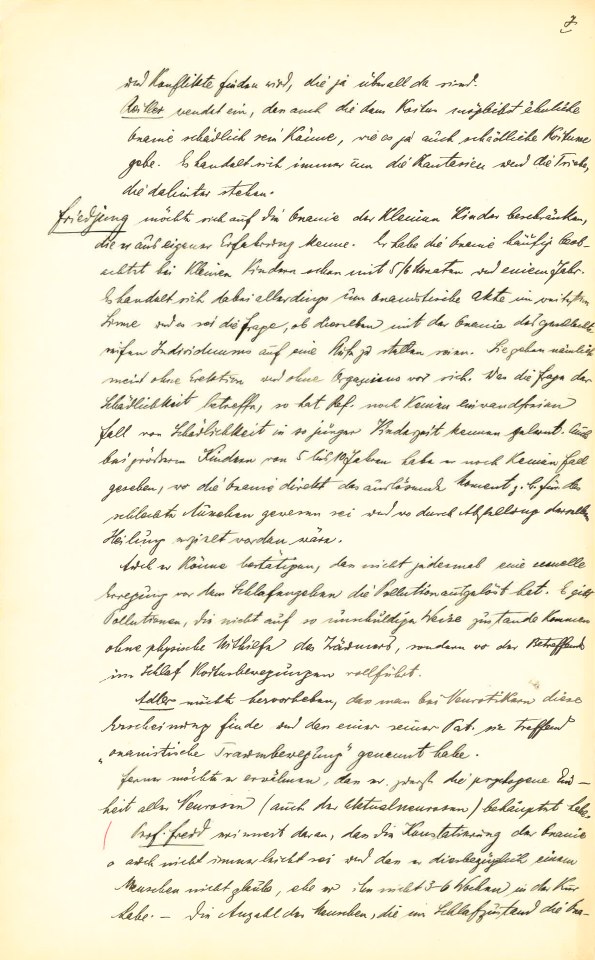 7
und Konflikte finden wird, die ja überall da sind.
Reitler wendet ein, dass auch die dem Koitus möglichst ähnliche
Onanie schädlich sein könne, wie es ja auch schädliche Koitusse
gebe. Es handelt sich immer um die Phantasien und die Triebe,
die dahinter stehen.
Friedjung möchte sich auf die Onanie der kleinen Kinder beschränken,
die er aus eigener Erfahrung kenne. Er habe die Onanie häufig beob-
achtet bei kleinen Kindern schon mit 5/6 Monaten und einem Jahr.
Es handelt sich dabei allerdings um onanistische Akte im weitesten
Sinne und es sei die Frage, ob dieselben mit der Onanie des geschlechts-
reifen Individuums auf eine Stufe zu stellen seien. Sie gehen nämlich
meist ohne Erektion und ohne Orgasmus vor sich. Was die Frage der
Schädlichkeit betreffe, so hat Ref. noch keinen einwandfreien
Fall von Schädlichkeit in so junger Kinderzeit kennen gelernt. Auch
bei grösseren Kindern von 5 bis 10 Jahren habe er noch keinen Fall
gesehen, wo die Onanie direkt das auslösende Moment z. B. für das
schlechte Aussehen gewesen sei und wo durch Abstellung derselben
Heilung erzielt worden wäre.
Auch er könne bestätigen, dass nicht jedesmal eine sexuelle
Erregung vor dem Schlafengehen die Pollution ausgelöst hat. Es gibt
Pollutionen, die nicht auf so unschuldige Weise zustande kommen
ohne physische Mithilfe des Träumers, sondern wo der Betreffende
im Schlaf Koitusbewegungen vollführt.
Adler möchte hervorheben, dass man bei Neurotikern diese
Erscheinung finde und dass einer seiner Pat. sie treffend
„onanistische Traumbewegung" genannt habe.
Ferner möchte er erwähnen, dass er zuerst die psychogene Ein-
heit aller Neurosen (auch der Aktualneurosen) behauptet habe.
Prof. Freud erinnert daran, dass die Konstatierung der Onanie
auch nicht immer leicht sei und dass er diesbezüglich einem
Menschen nicht glaube, ehe er ihn nicht 3-6 Wochen in der Kur
habe. — Die Anzahl der Menschen, die im Schlafzustand die Ona-